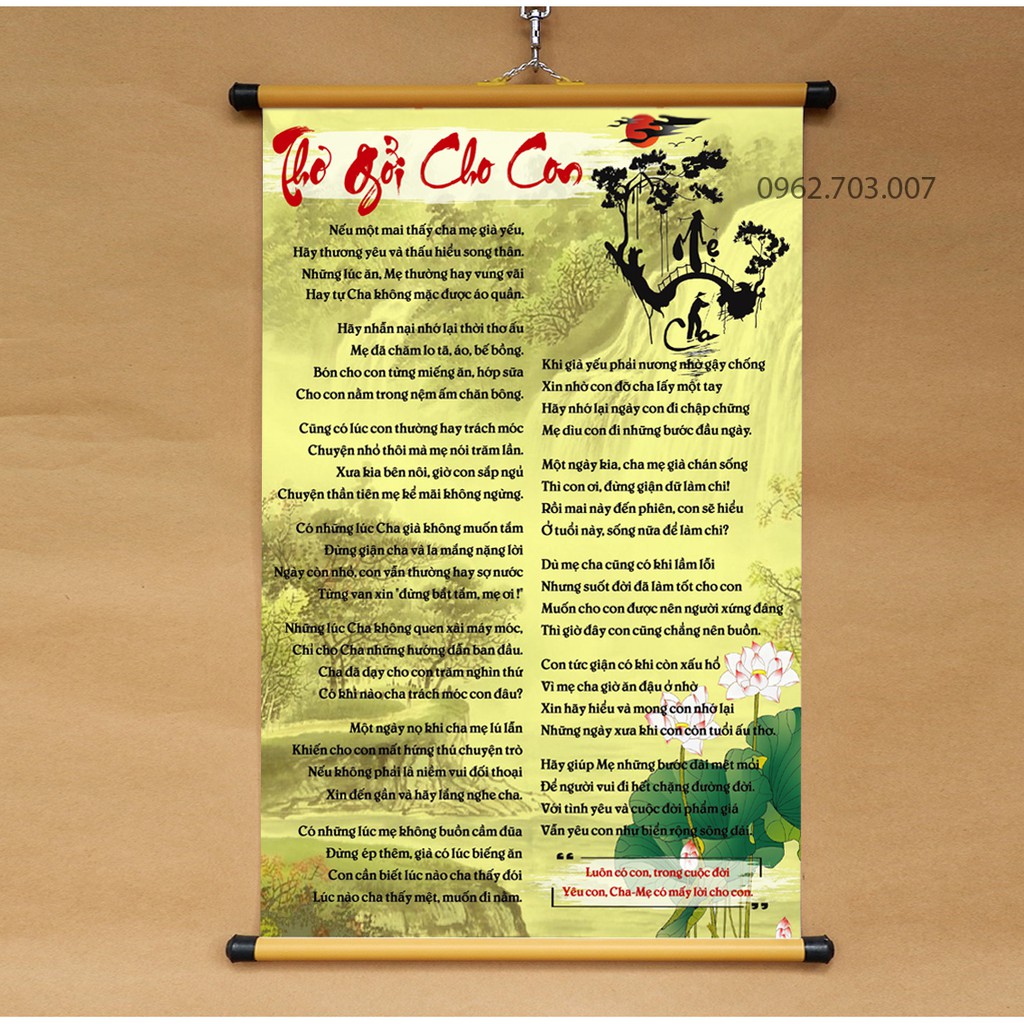 Thơ Gởi Cho Con
0962.703.007
Mẹ
Cha
Nếu một mai thấy cha mẹ già yếu,
Hãy thương yêu và thấu hiểu song thân.
Những lúc ăn, Mẹ thường hay vung vãi
Hay tự Cha không mặc được áo quần.
Hãy nhẫn nại nhớ lại thời thơ ấu
Mẹ đã chăm lo tã, áo, bế bồng.
Bón cho con từng miếng ăn, hớp sữa
Cho con nằm trong nệm ấm chăn bông.
Cũng có lúc con thường hay trách móc
Chuyện nhỏ thôi mà mẹ nói trăm lần.
Xưa kia bên nôi, giờ con sắp ngủ
Chuyện thần tiên mẹ kể mãi không ngừng.
Có những lúc Cha già không muốn tắm
Đừng giận cha và la mắng nặng lời
Ngày còn nhỏ, con vẫn thường hay sợ nước
Từng van xin "đừng bắt tắm, mẹ ơi !"
Những lúc Cha không quen xài máy móc,
Chỉ cho Cha những hướng dẫn ban đầu.
Cha đã dạy cho con trăm nghìn thứ
Có khi nào cha trách móc con đâu?
Một ngày nọ khi cha mẹ lú lẫn
Khiến cho con mất hứng thú chuyện trò
Nếu không phải là niềm vui đối thoại
Xin đến gần và hãy lắng nghe cha.
Có những lúc mẹ không buồn cầm đũa
Đừng ép thêm, già có lúc biếng ăn
Con cần biết lúc nào cha thấy đói
Lúc nào cha thấy mệt, muốn đi nằm.
Khi già yếu phải nương nhờ gậy chống
Xin nhờ con đỡ cha lấy một tay
Hãy nhớ lại ngày con đi chập chững
Mẹ dìu con đi những bước đầu ngày.
Một ngày kia, cha mẹ già chán sống
Thì con ơi, đừng giận dữ làm chi!
Rồi mai này đến phiên, con sẽ hiểu
Ở tuổi này, sống nữa để làm chi?
Dù mẹ cha cũng có khi lầm lỗi
Nhưng suốt đời đã làm tốt cho con
Muốn cho con được nên người xứng đáng
Thì giờ đây con cũng chẳng nên buồn.
Con tức giận có khi còn xấu hổ
Vì mẹ cha giờ ăn đậu ở nhờ
Xin hãy hiểu và mong con nhớ lại
Những ngày xưa khi con còn tuổi ấu thơ.
Hãy giúp Mẹ những bước dài mệt mỏi
Để người vui đi hết chặng đường đời.
Với tình yêu và cuộc đời phẩm giá
Vẫn yêu con như biển rộng sông dài.
Luôn có con, trong cuộc đời
Yêu con, Cha-Mẹ có mấy lời cho con.